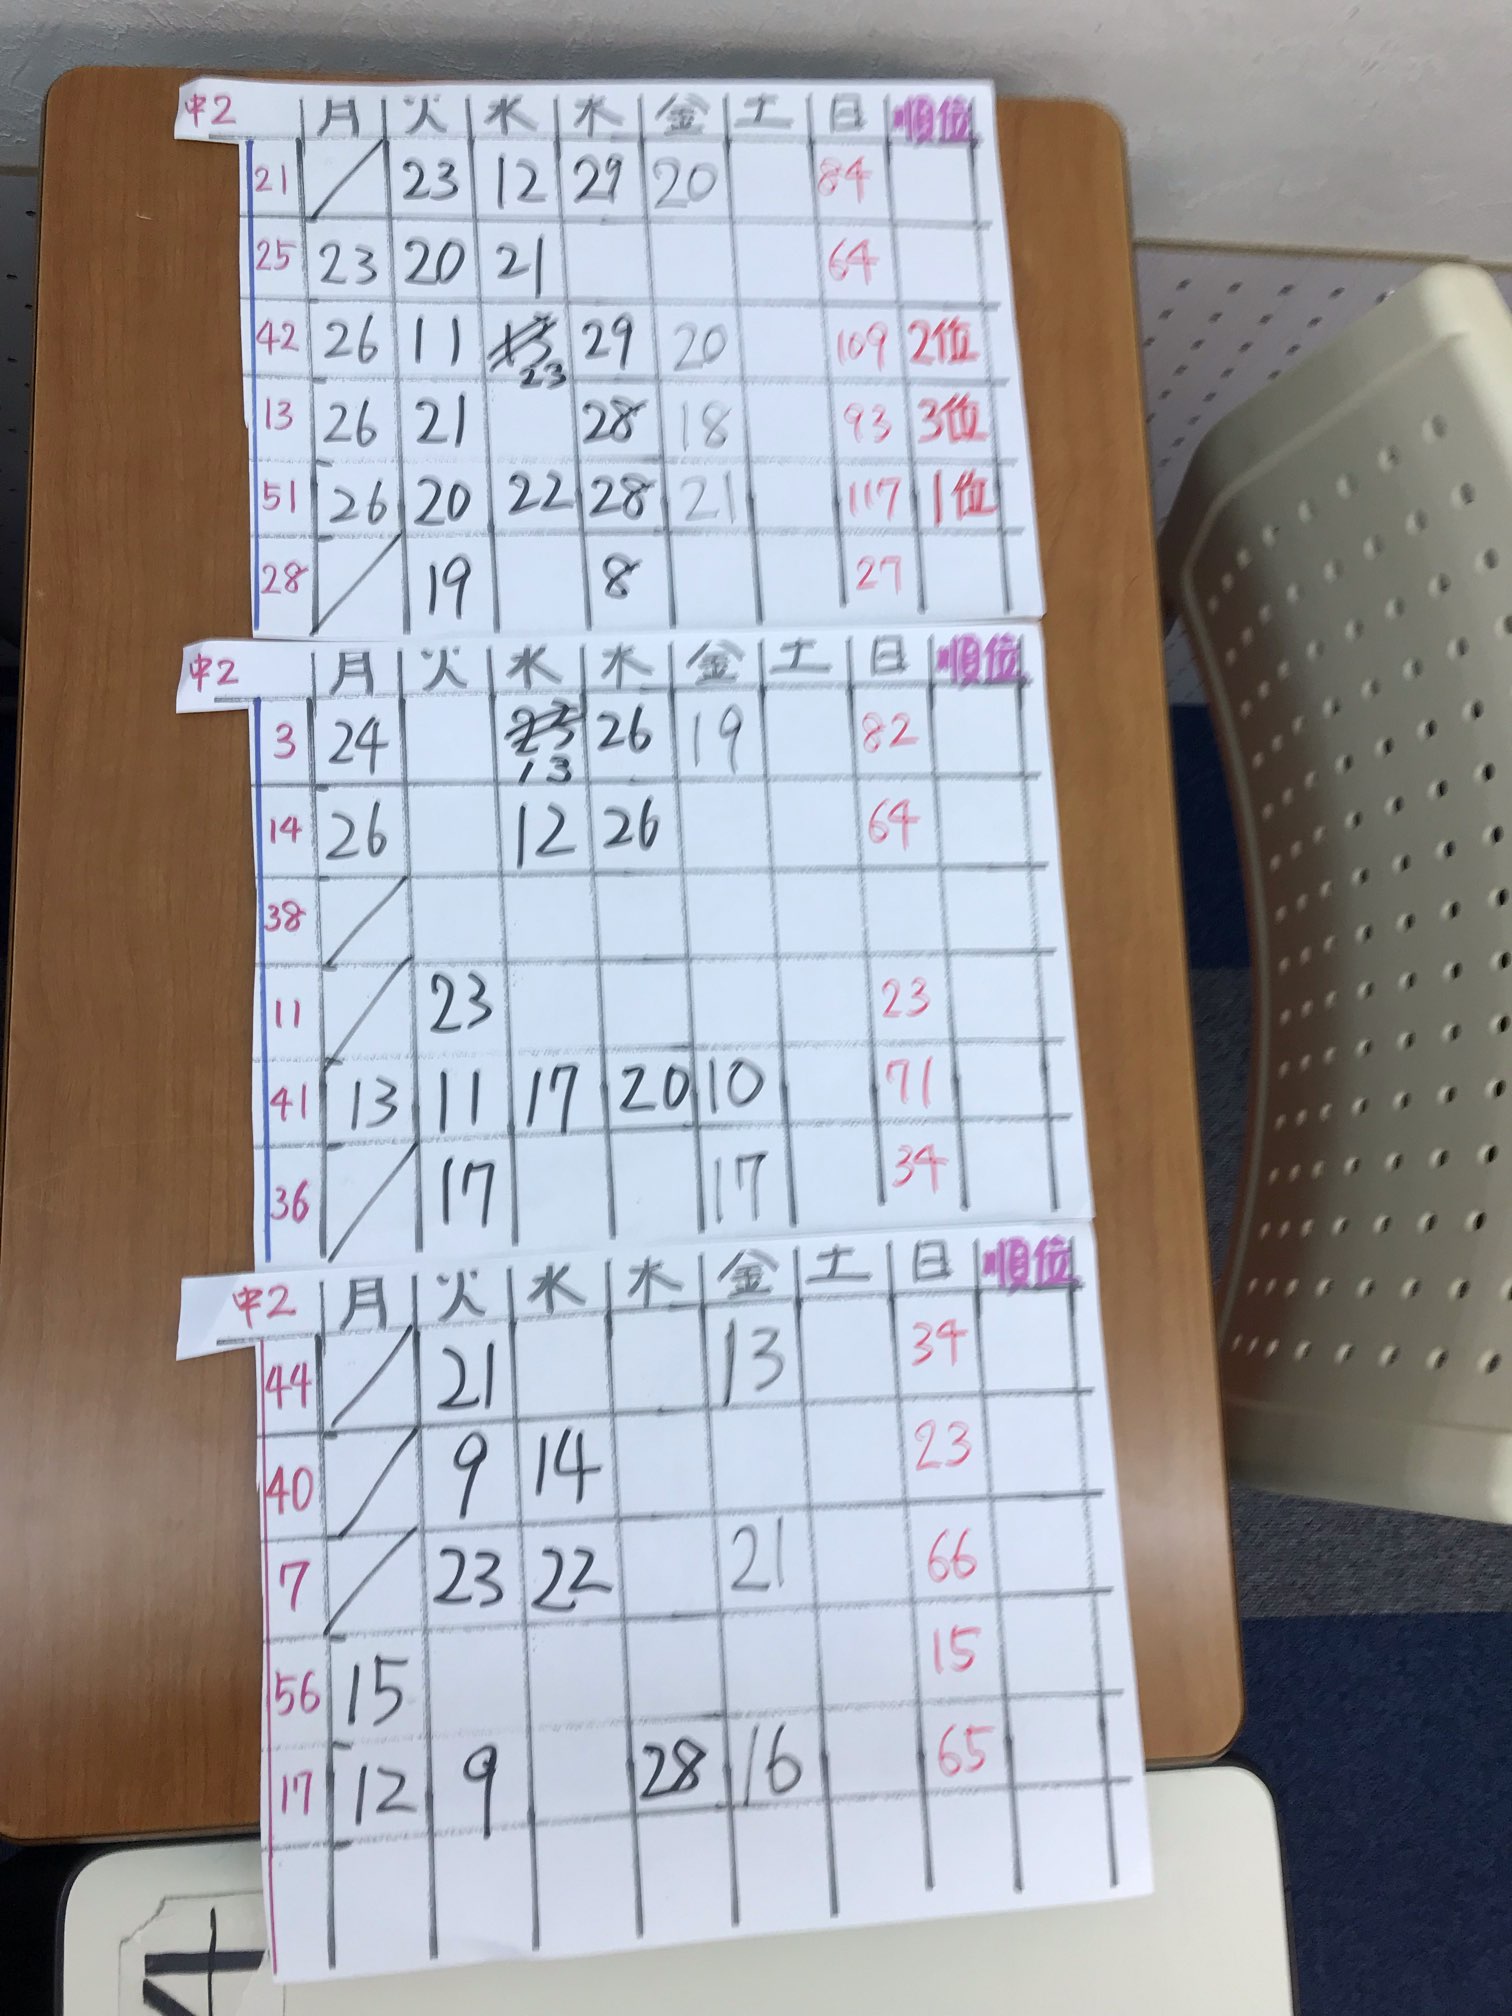 中2 月 火 水 木 金 土 日 順位
21 23 12 29 20 84
25 23 20 21 64
42 26 11 23 29 20 109 2位
13 26 21 28 18 93 3位
51 26 20 22 28 21 117 1位
28 19 8 27
中2 月 火 水 木 金 土 日 順位
3 24 13 26 19 82
14 26 12 26 64
38
11 23 23
41 13 11 17 20 10 71
36 17 17 34
中2 月 火 水 木 金 土 日 順位
44 21 13 34
40 9 14 23
7 23 22 21 66
56 15 15
17 12 9 28 16 65